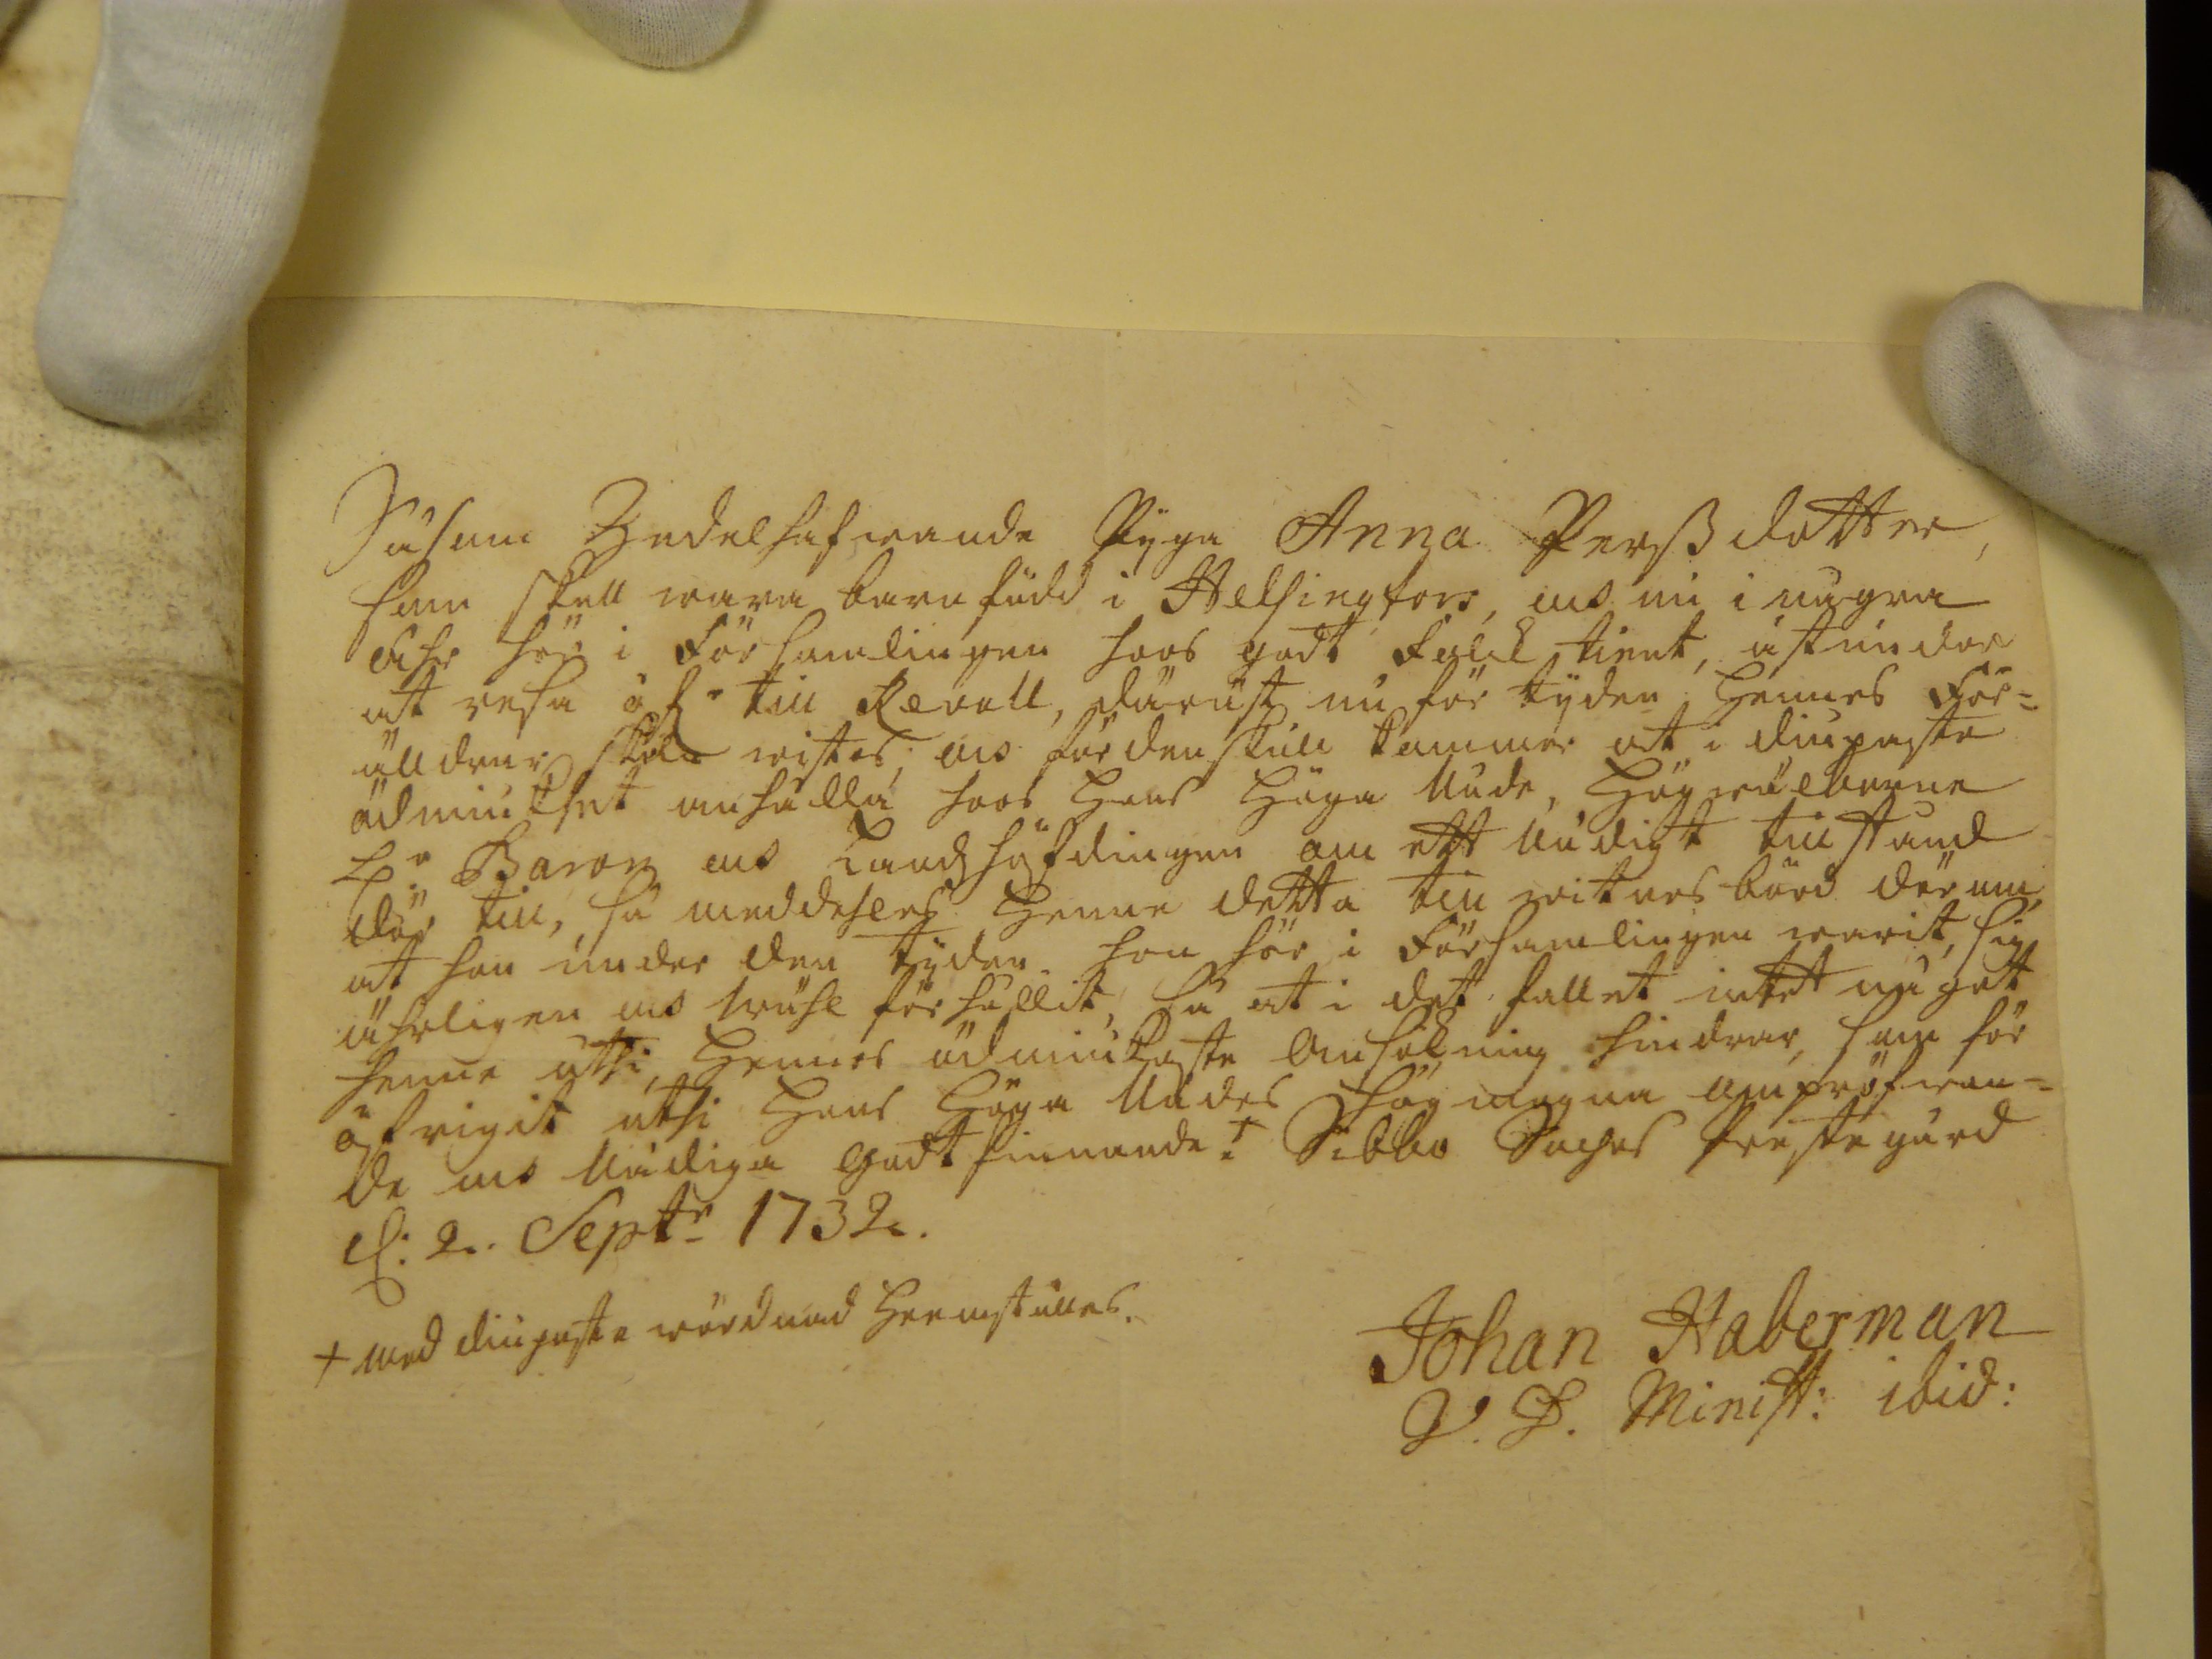 Såsom Zedelhafwande Pyga Anna Perßdotter,
som skall wara barnfödd i Helsingfors, och nu i några
åhr här i Församlingen hoos godt Folck tient, åstundar
at resa öfr till Revall, däräst nu för tyden Hennes För=
älldrar skola wistas; och fördenskull kommer at i diupaste
ödmiukhet anhålla hoos Hans Höga Nåde, Högwälborne
Hr Baron och Landshöfdingen om ett Nådigt tillstånd
där till, så meddehles Henne detta till witnesbörd därom,
at hon under den tyden hon här i Församlingen warit, sig
ährligen och wähl förhållit, så at i det fallet intet någott
henne uthi Hennes ödmiukaste Ansökning hindrar, som för
öfrigit uthi Hans Höga Nådes högmogna ompröfwan=
de och Nådiga godtfinnande + Sibbo Sochns Prestegård
d: 2. Septr 1732.
+ med diupaste wördnad Heemställes.
Johan Haberman
V. D. Minist: ibid: